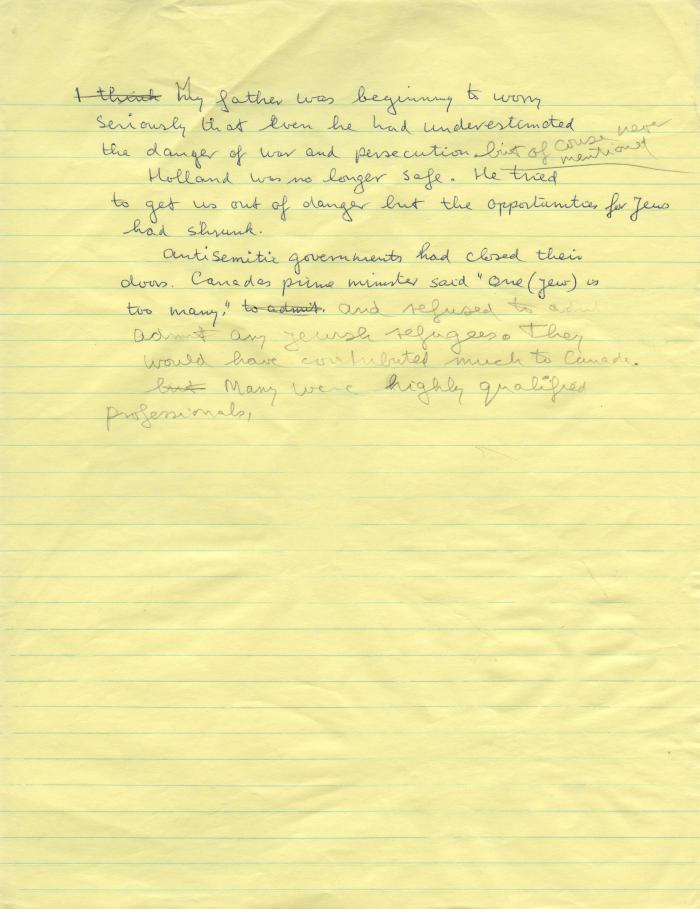 I think My father was beginning to worry
seriously that even he had underestimated
the danger of war and persecution but of couse never mentioned
Holland was no longer safe. He tried
to get us out of danger but the opportunities for Jews
had shrunk.
Antisemitic governments had closed their
doors. Canadas prime minister said "One (Jew) is
too many." to admit. and refused to adm
admit any Jewish refugees. They
would have contributed much to Canada.
but Many were highly qualified
professionals,